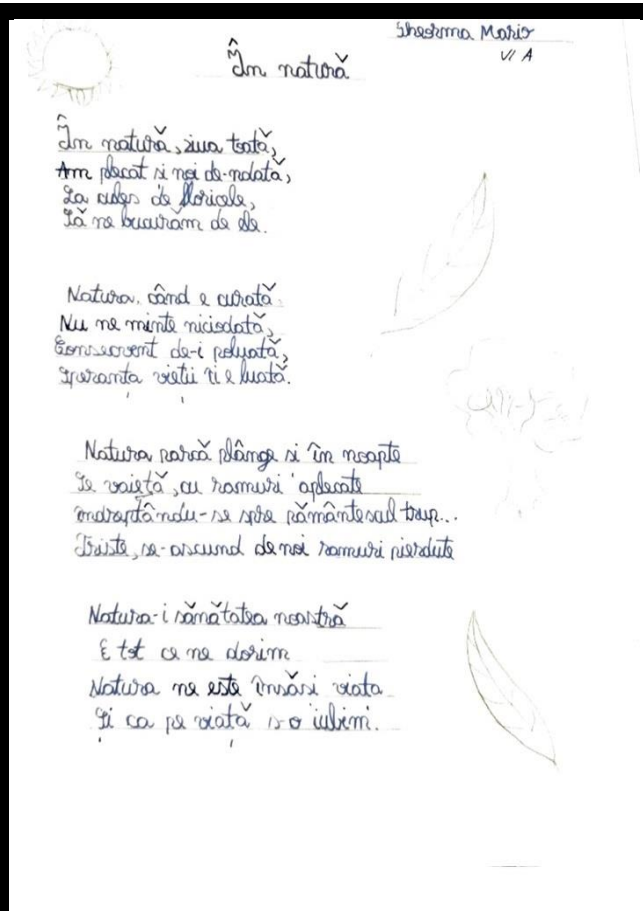 Gheorma Mario
VI A
În natură
În natură, ziua toată,
Am plecat si noi de-ndată,
La cules de floricele,
Să ne bucurăm de ele.
Natura, când e curată
Nu ne minte niciodată,
Consecvent de-i poluată,
Speranța vieții ti e luată.
Natura parcă plânge si în noapte
Se vaietă, cu ramuri aplecate
îndreptându-se spre pământescul trup...
Triste, se-ascund de noi ramuri pierdute
Natura-i sănătatea noastră
E tot ce ne dorim
Natura ne este însăsi viata
Și ca pe viață s-o iubim.